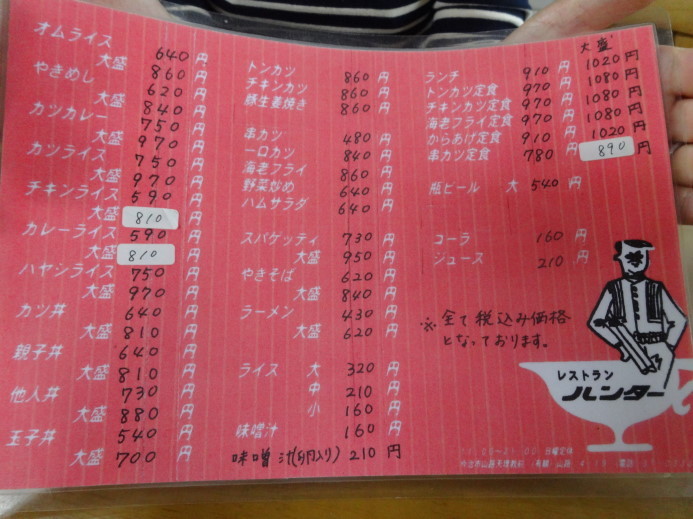 オムライス 640円
大盛 860円
やきめし 620円
大盛 840円
カツカレー 750円
大盛 970円
カツライス 750円
大盛 970円
チキンライス 590円
大盛 810円
カレーライス 590円
大盛 810円
ハヤシライス 750円
大盛 970円
カツ丼 640円
大盛 810円
親子丼 640円
大盛 810円
他人丼 730円
大盛 880円
玉子丼 540円
大盛 700円
トンカツ 860円
チキンカツ 860円
豚生姜焼き 860円
串カツ 480円
一口カツ 840円
海老フライ 860円
野菜炒め 640円
ハムサラダ 640円
スパゲッティ 730円
大盛 950円
やきそば 620円
大盛 840円
ラーメン 430円
大盛 620円
ライス 大 320円
中 210円
小 160円
味噌汁 160円
味噌汁(卵入り) 210円
大盛
ランチ 910円 1020円
トンカツ定食 970円 1080円
チキンカツ定食 970円 1080円
海老フライ定食 970円 1080円
からあげ定食 910円 1020円
串カツ定食 780円 890円
瓶ビール 大 540円
コーラ 160円
ジュース 210円
※全て税込み価格
となっております。
レストラン
ハンター
日曜定休